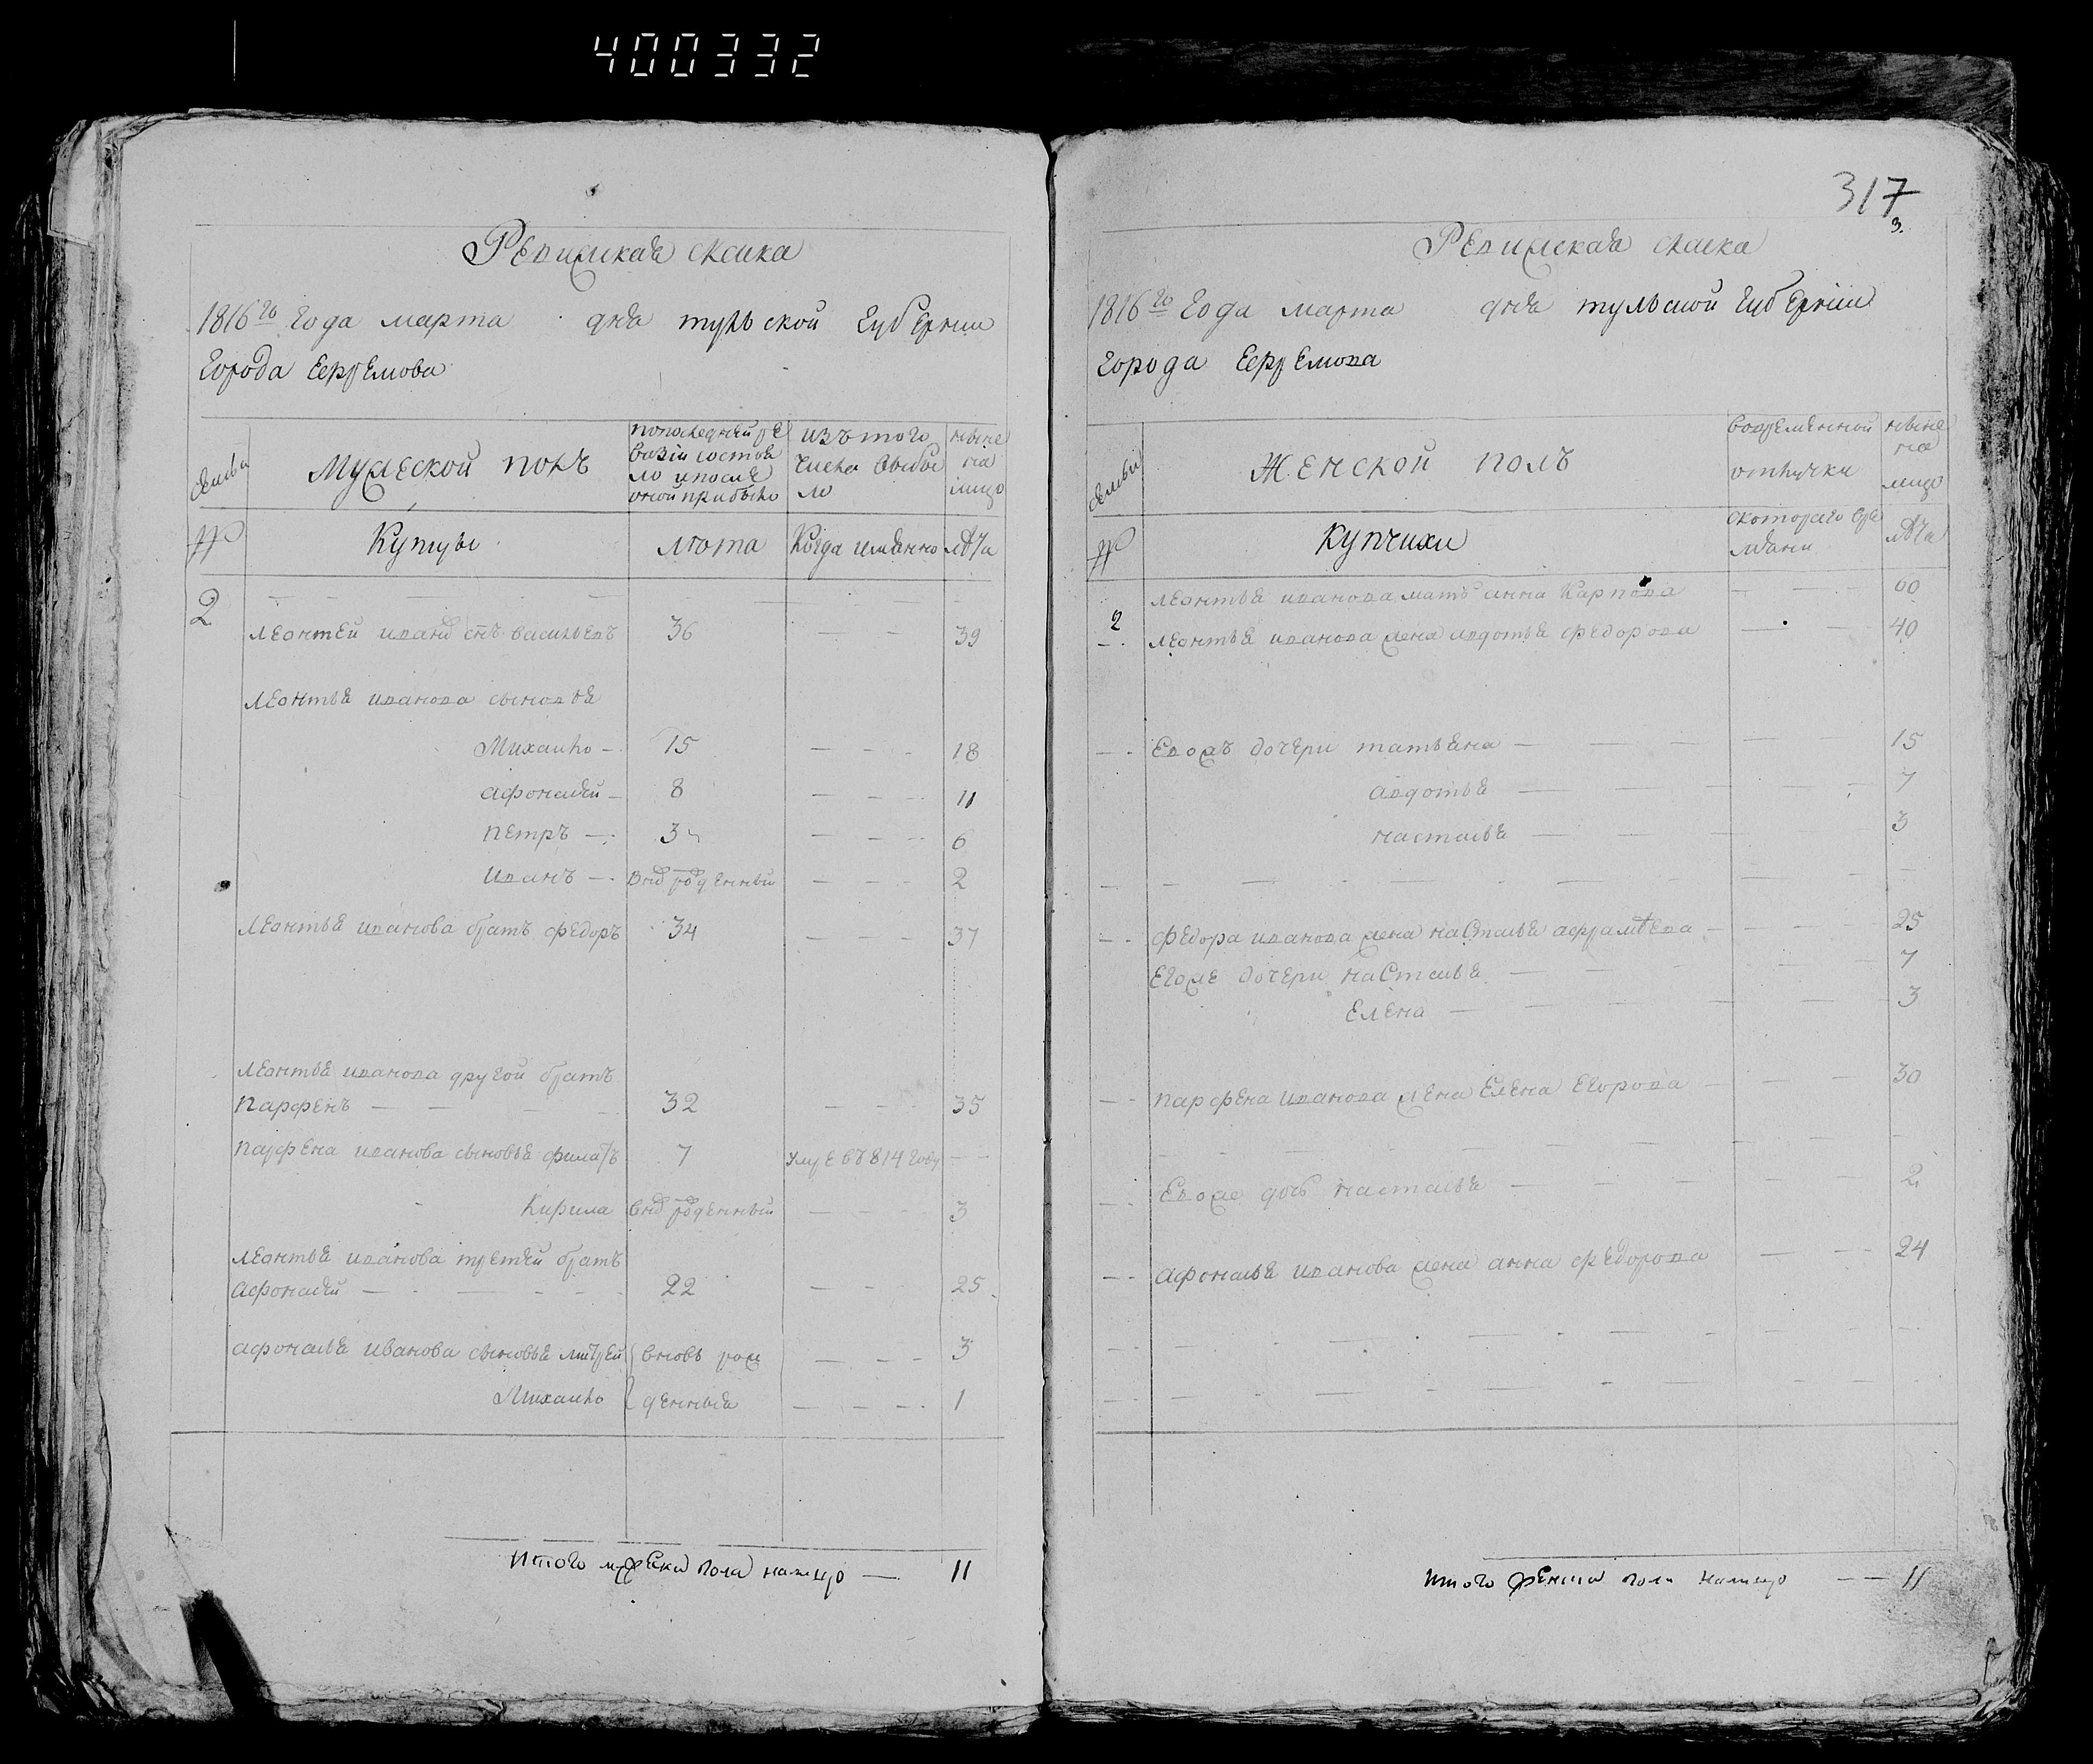 400332
Ревижская скаска
1816го Года марта дня тульской Губернии
Города Ефремова
семьи
Мужеской полъ
попоследней ре
визіи состоя
ло ипосле
оной прибыло
изъ того
числа выбы
ло
ныне
на
лицо
№
Купцы
лѣта
Когда имянно
лѣта
2
леонтей иванов снъ васильевъ 36 — — — 39
леонтья иванова сыновья
Михаило — 15 — — — 18
афонасей — 8 — — — 11
петръ — 3 — — — 6
иванъ — внов рожденный — — — 2
леонтья иванова братъ федоръ 34 — — — 37
леонтья иванова другой братъ
парфенъ — — — — 32 — — — 35
парфена иванова сыновья филатъ 7 умре въ 814 году — —
Кирила внов рожденный — — — 3
леонтья иванова третей братъ
афонасей — — — — 22 — — — 25
афонасья иванова сыновья митрей вновь рож — — — 3
Михаило денныя — — — 1
Итого мужеска пола налицо — 11
317
3.
Ревижская скаска
1816го Года марта дня тульской Губернии
города Ефремова
семьи
Женской полъ
вовременной
отлучки
ныне
на
лицо
№
Купчихи
скоторого вре
мяни
лѣта
леонтья иванова мать анна Карпова — — — 60
2 леонтья иванова жена авдотья федорова — — — 40
Евожъ дочери татьяна — — — 15
авдотья — — — 7
настасья — — — 3
федора иванова жена настасья
— — — 25
Егоже дочери настасья — — — 7
Елена — — — 3
парфена иванова жена Елена Егорова — — — 30
Евоже дочь настасья — — — 2
афонасья иванова жена анна федорова — — — 24
Итого женска пола налицо — — 11